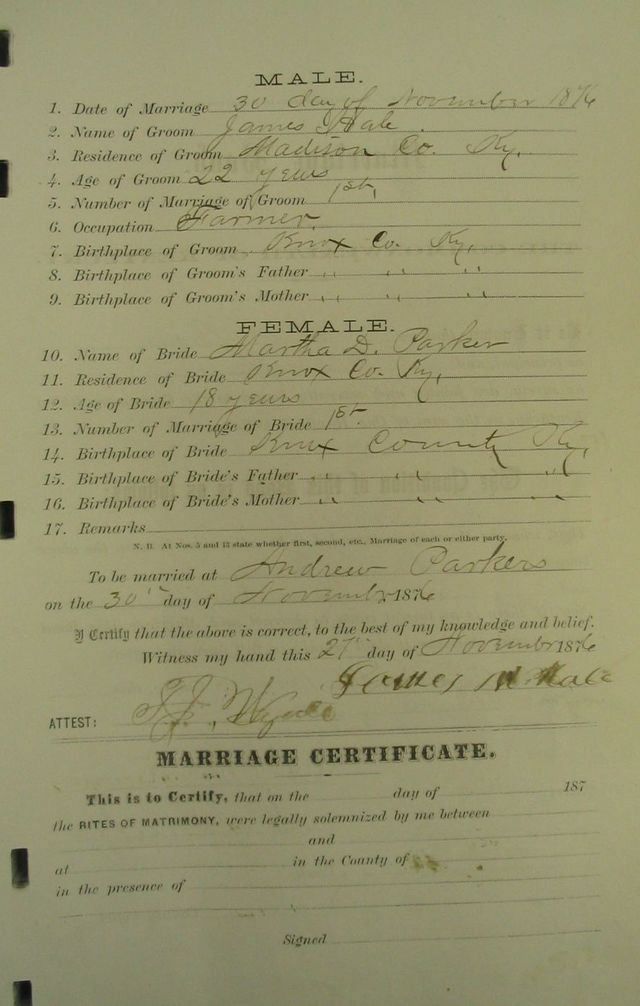 MALE.
1. Date of Marriage 30 day of November 1876
2. Name of Groom James Hale.
3. Residence of Groom Madison Co. Ky.
4. Age of Groom 22 years
5. Number of Marriage of Groom 1st.
6. Occupation Farmer.
7. Birthplace of Groom Knox Co. Ky.
8. Birthplace of Groom's Father " " "
9. Birthplace of Groom's Mother " " "
FEMALE.
10. Name of Bride Martha D. Parker
11. Residence of Bride Knox Co. Ky,
12. Age of Bride 18 years
13. Number of Marriage of Bride 1st.
14. Birthplace of Bride Knox County Ky,
15. Birthplace of Bride's Father " " "
16. Birthplace of Bride's Mother " " "
17. Remarks
N. B. At Nos. 5 and 13 state whether first, second, etc., Marriage of each or either party.
To be married at Andrew Parkers
on the 30" day of November 1876
I Certify that the above is correct, to the best of my knowledge and belief.
Witness my hand this 27" day of November 1876
James M Hale
ATTEST:
MARRIAGE CERTIFICATE.
This is to Certify, that on the day of 187
the RITES OF MATRIMONY, were legally solemnized by me between
and
at in the County of
in the presence of
Signed